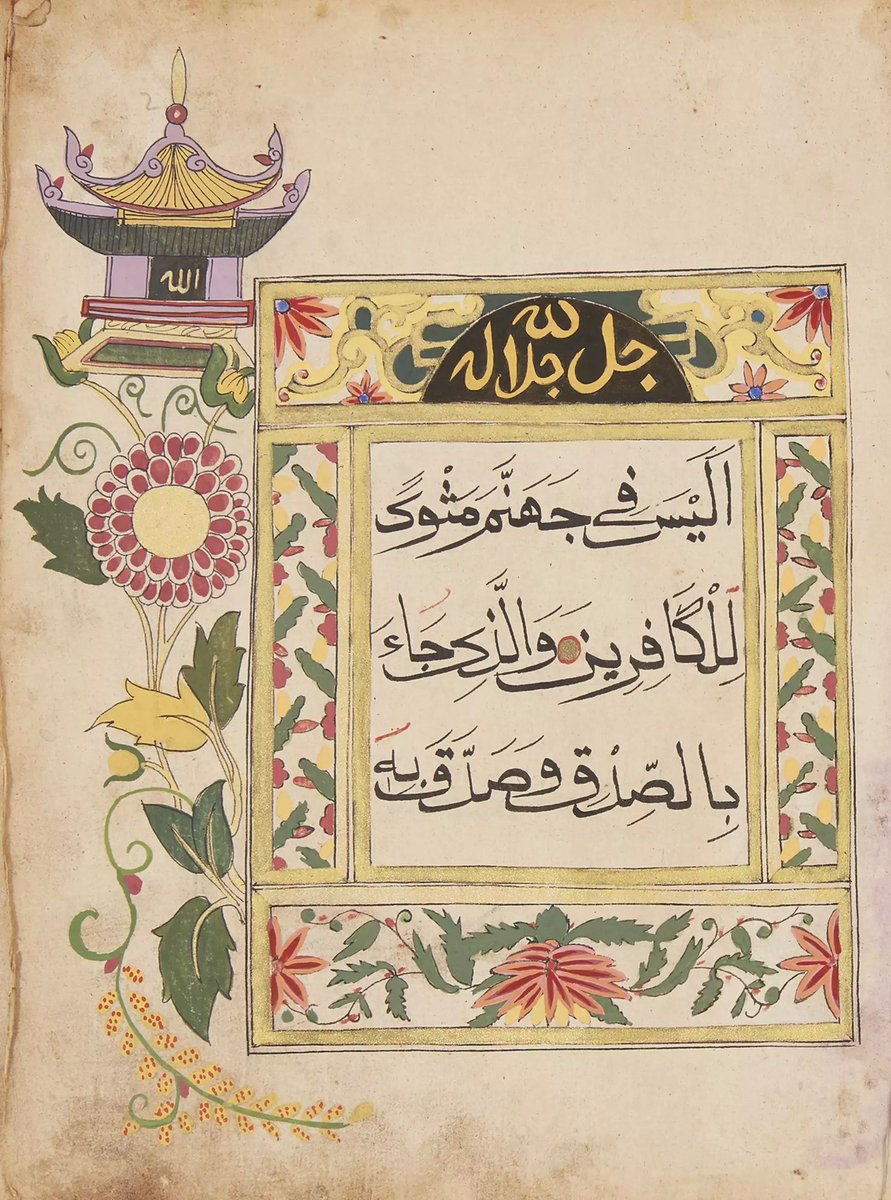 الله
جل جلاله
اَلَيْسَ فِي جَهَنَّمَ مَثْوًى
لِلْكَافِرِينَ وَالَّذِي جَاءَ
بِالصِّدْقِ وَصَدَّقَ بِهِ